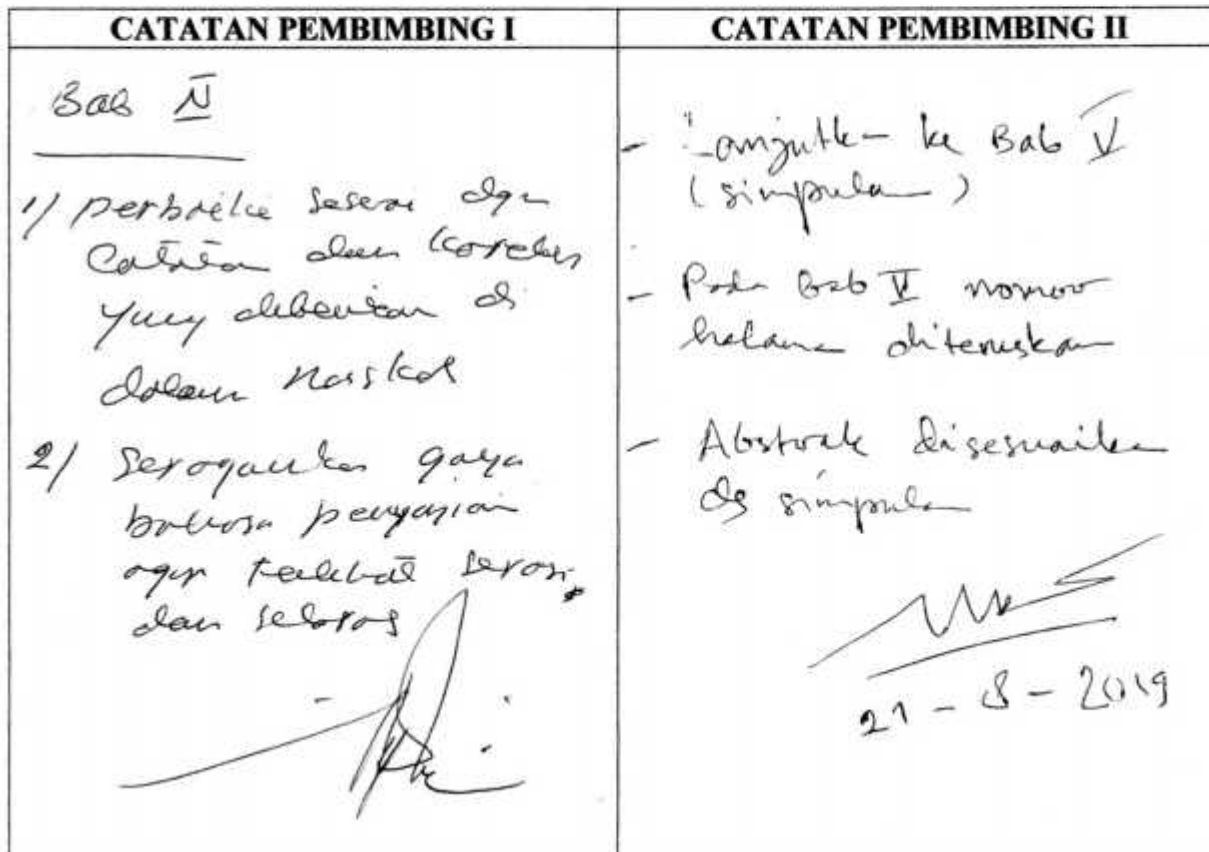 CATATAN PEMBIMBING I
Bab IV
1/ perbaiki sesuai dgn
Catatan dan koreksi
yang diberikan di
dalam Naskah
2/ Seragamkan gaya
bahasa penyajian
agar terlihat serasi
dan selaras
CATATAN PEMBIMBING II
- Lanjutk- ke Bab V
(simpulan)
- Pada Bab V nomor
halaman diteruskan
- Abstrak disesuaikan
dg simpulan
21-8-2019